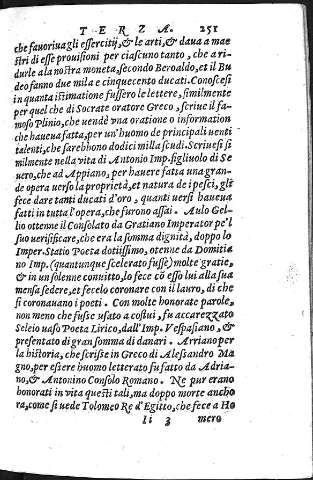 TERZA. 251
che fauoriua gli essercitij, & le arti, & daua a mae
stri di esse prouisioni per ciascuno tanto, che a ri-
durle alla nostra moneta, secondo Beroaldo, et il Bu
deo fanno due mila e cinquecento ducati. Conoscesi
in quanta istimatione fussero le lettere, similmente
per quel che di Socrate oratore Greco, scriue il fa-
moso Plinio, che uendè vna oratione o information
che haueua fatta, per un'huomo de principali uenti
talenti, che sarebbono dodici milla scudi. Scriuesi si
milmente nella vita di Antonio Imp. figliuolo di Se
uero, che ad Appiano, per hauere fatta una gran-
de opera uerso la proprietà, et natura de i pesci, gli
fece dare tanti ducati d'oro, quanti uersi haueua
fatti in tutta l'opera, che furono assai. Aulo Gel-
lio ottenne il Consolato da Gratiano Imperator pe'l
suo uersificare, che era la somma dignità, doppo lo
Imper. Statio Poeta dotissimo, otenne da Domitia
no Imp. (quantunque scelerato fusse) molte gratie,
& in un solenne conuitto, lo fece cō esso lui alla sua
mensa sedere, et fecelo coronare con il lauro, di che
si coronauano i poeti. Con molte honorate parole,
non meno che fusse usato a costui, fu accarezzato
Seleio uaso Poeta Lirico, dall'Imp. Vespasiano, &
presentato di gran somma di danari. Arriano per
la historia, che scrisse in Greco di Alessandro Ma
gno, per essere huomo letterato fu fatto da Adria-
no, & Antonino Consolo Romano. Ne pur erano
honorati in vita questi tali, ma doppo morte ancho
ra, come si uede Tolomeo Re d'Egitto, che fece a Ho
Ii 3 mero